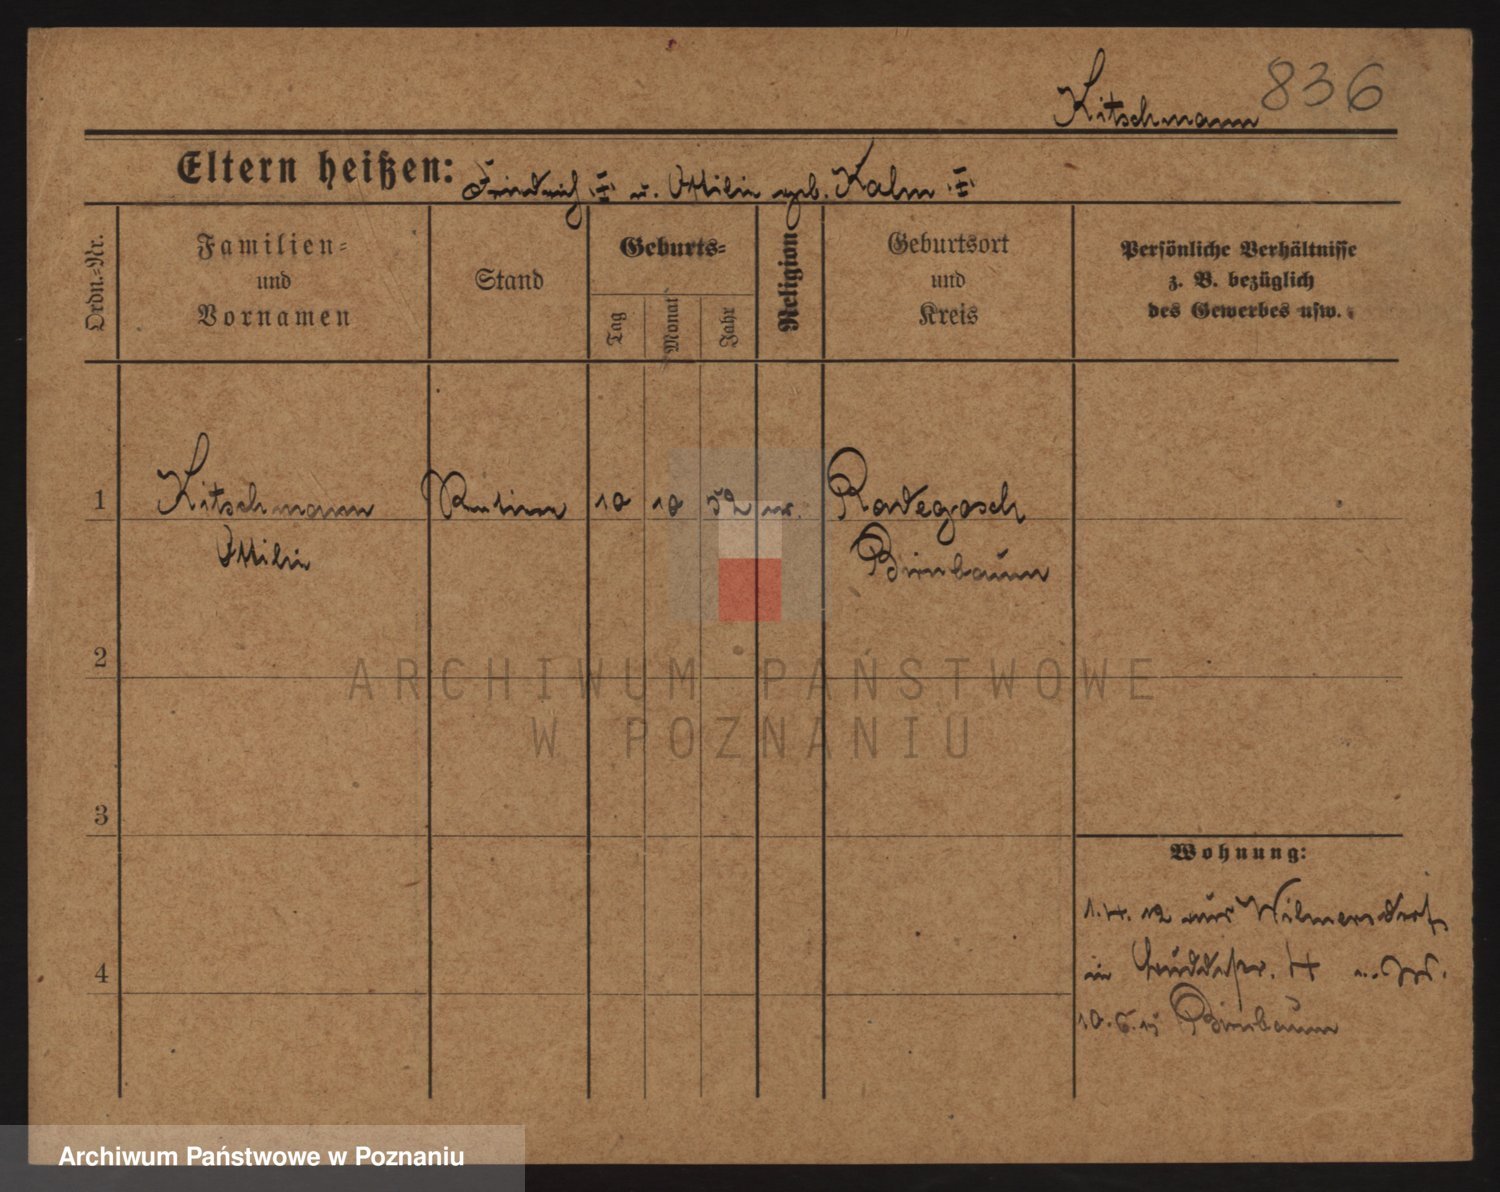 Kitschmann 836
Eltern heißen: Friedrich u. Ottilie geb. Kalm
Ordn.-Nr.
Familien-
und
Vornamen
Stand
Geburts-
Tag
Monat
Jahr
Religion
Geburtsort
und
Kreis
Persönliche Verhältnisse
z. B. bezüglich
des Gewerbes usw.
1 Kitschmann 10 10 52 ev. Radegosch
Ottilie Birnbaum
2
ARCHIWUM PAŃSTWOWE
W POZNANIU
3
Wohnung:
1.4.12 aus Wilmersdorf
4 in 4
10.6.15 Birnbaum
Archiwum Państwowe w Poznaniu